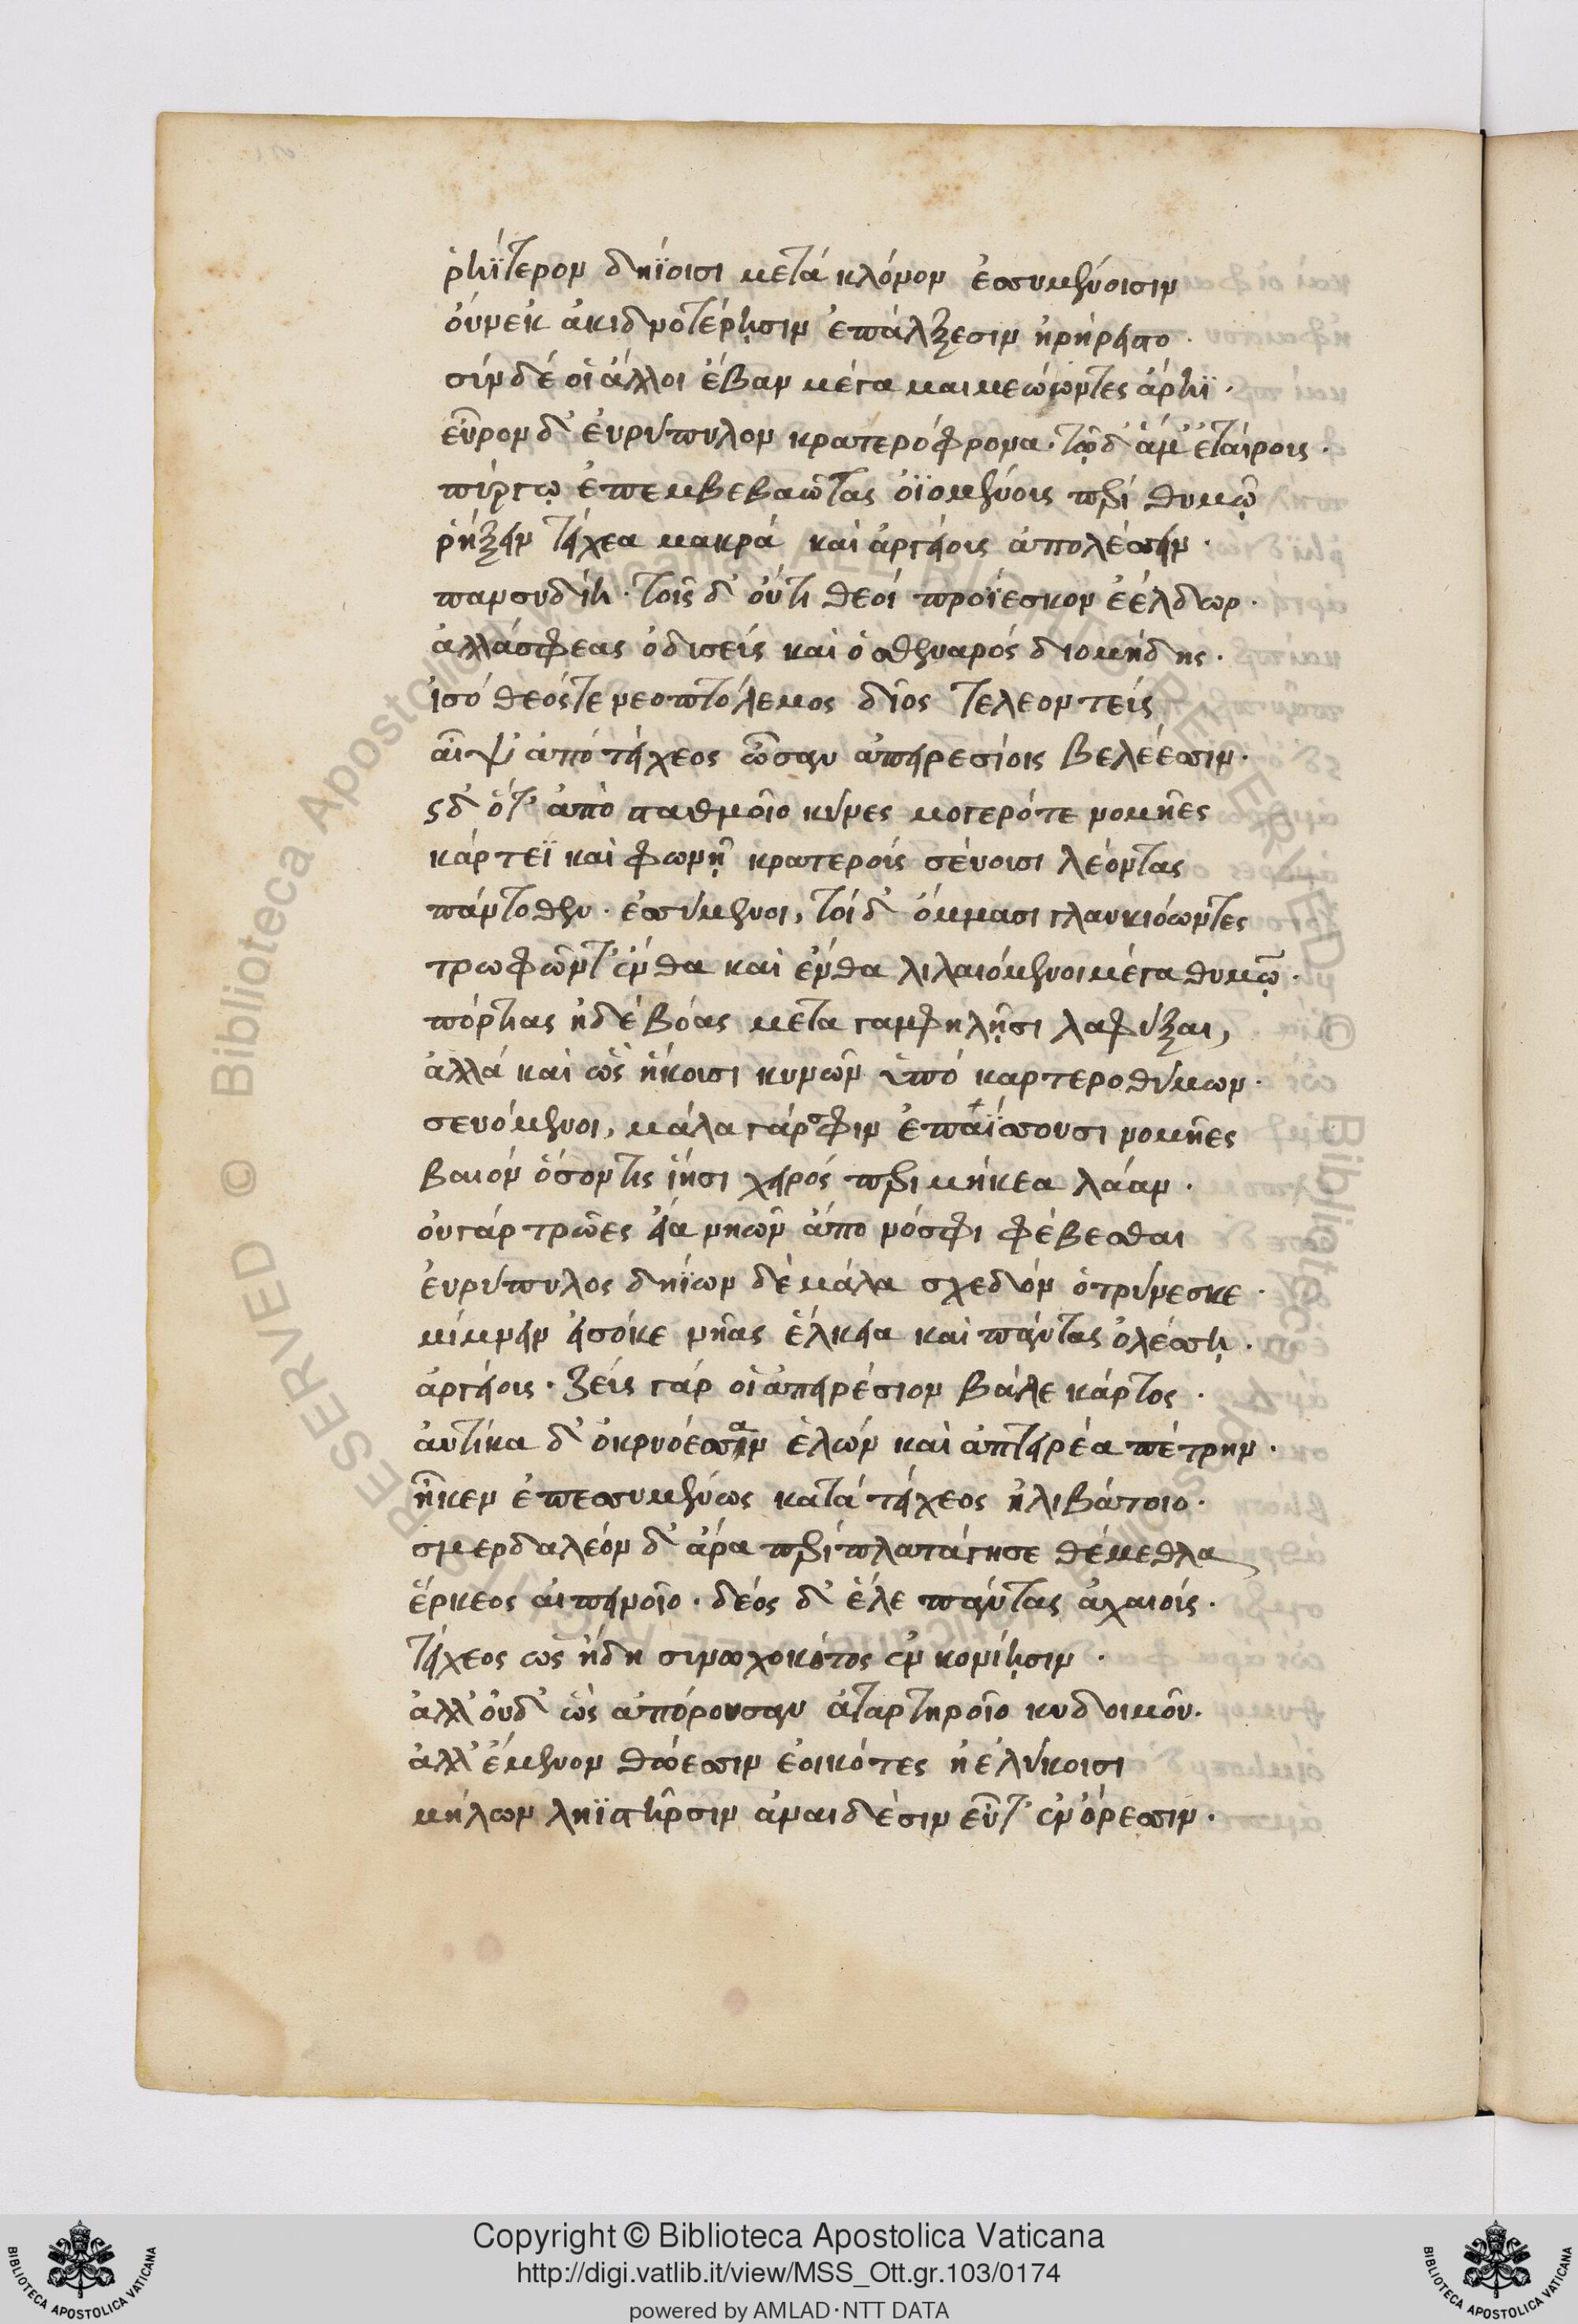 ῥηΐτερον δηΐοισι μετὰ κλόνον ἐσσυμένοισιν
οὕνεκ ἀκιδνοτέρῃσιν ἐπάλξεσιν ἠρήρειστο·
σὺν δέ οἱ ἄλλοι ἔβαν μέγα μαιμώωντες ἄρηϊ·
εὗρον δ' ἐυρύπυλον κρατερόφρονα· τῷ δ' ἅμ' ἑταίρους·
πύργῳ ἐπεμβεβαῶτας ὀϊομένους περὶ θυμῷ
ῥήξειν τείχεα μακρὰ καὶ ἀργείους ἀπολέσσειν·
πανσυδίῃ· τοῖς δ' οὔτι θεοὶ προΐεσκον ἐέλδωρ·
ἀλλά σφεας ὀδυσεὺς καὶ ὁ σθεναρὸς διομήδης·
ἰσόθεός τε νεοπτόλεμος δῖος τε λεοντεὺς
αἶψ' ἀπὸ τείχεος ὦσαν ἀπειρεσίοις βελέεσσιν·
ὡς δ' ὅτ' ἀπὸ σταθμοῖο κύνες μογερότε νομῆες
κάρτεϊ καὶ φωνῇ κρατεροὺς σεύουσι λέοντας
πάντοθεν· ἐσσύμενοι, τοὶ δ' ὄμμασι γλαυκιόωντες
τρωφῶντ' ἔνθα καὶ ἔνθα λιλαιόμενοι μέγα θυμῷ·
πόρτιας ἠδὲ βόας μετὰ γαμφηλῇσι λαφύξαι,
ἀλλὰ καὶ ὣς εἴκουσι κυνῶν ὑπὸ καρτεροθύμων·
σευόμενοι, μάλα γάρ σφιν ἐπαΐσσουσι νομῆες
βαιὸν ὅσον τις ἵησι χερὸς περιμήκεα λᾶαν·
οὐ γὰρ τρῶες εἴα νηῶν ἄπο νόσφι φέβεσθαι
ἐυρύπυλος δηΐων δὲ μάλα σχεδὸν ὀτρύνεσκε·
μίμνειν εἰσόκε νῆας ἕλῃ καὶ πάντας ὀλέσσῃ·
ἀργείους· ζεὺς γάρ οἱ ἀπειρέσιον βάλε κάρτος·
αὐτίκα δ' ὀκρυόεσσαν ἑλὼν καὶ ἀπτειρέα πέτρην·
ἧκεν ἐπεσσυμένως κατὰ τείχεος ἠλιβάτοιο·
σμερδαλέον δ' ἄρα περιπλατάγησε θέμεθλα
ἕρκεος αἰπεινοῖο· δέος δ' ἕλε πάντας ἀχαιούς·
τείχεος ὡς ἤδη συνοχωκότος ἐν κονίῃσιν·
ἀλλ' οὐδ' ὣς ἀπόρουσαν ἀταρτηροῖο κυδοιμοῦ·
ἀλλ' ἔμενον θώεσσιν ἐοικότες ἠὲ λύκοισι
μήλων ληϊστῆρσιν ἀναιδέσιν εὖτ' ἐν ὄρεσσιν·
Copyright © Biblioteca Apostolica Vaticana
http://digi.vatlib.it/view/MSS_Ott.gr.103/0174
powered by AMLAD·NTT DATA